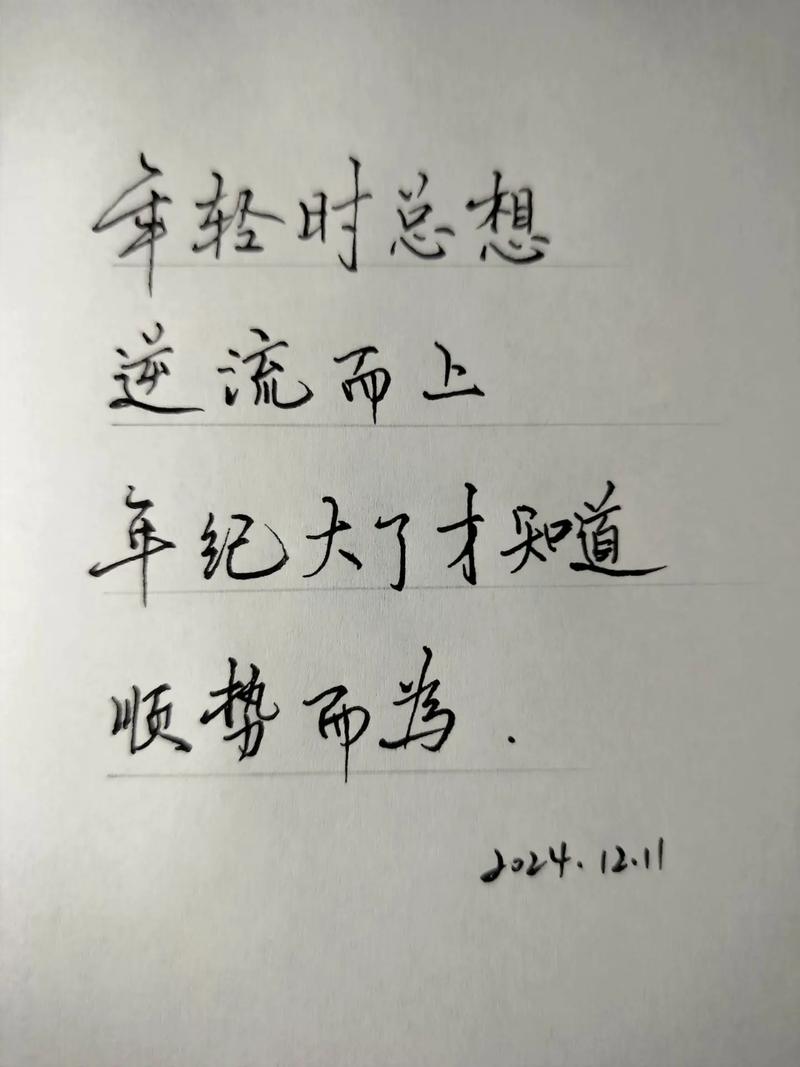 年轻时总想
逆流而上
年纪大了才知道
顺势而為.
2024.12.11